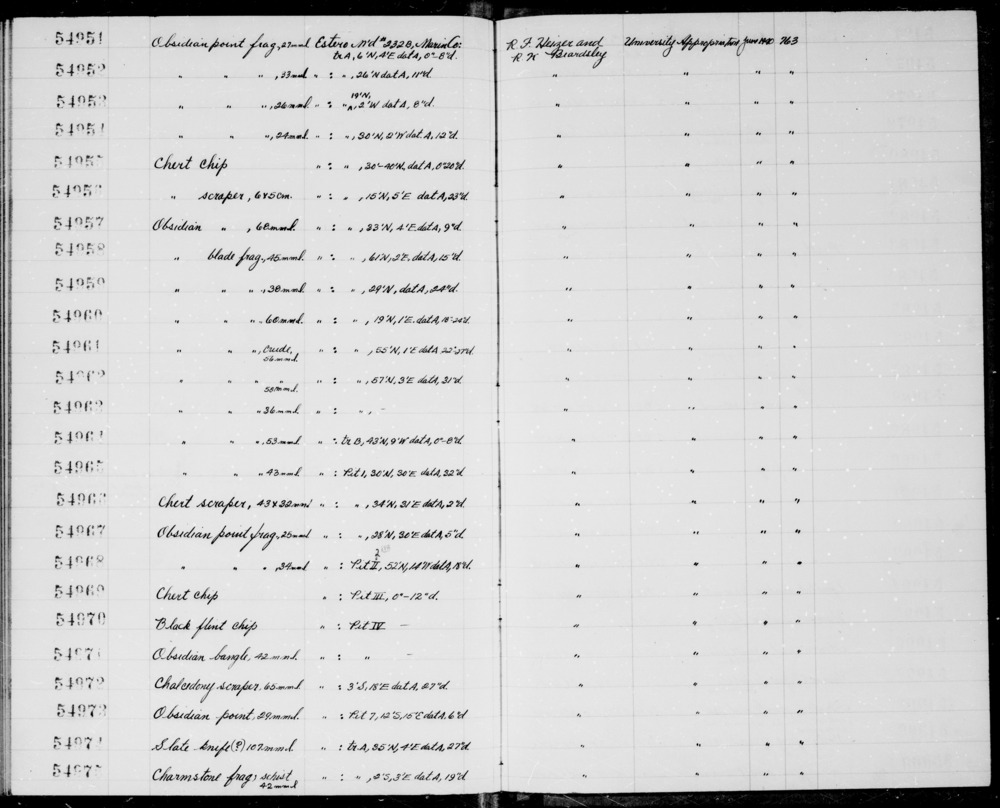 54951 Obsidian point frag, 27mml Estero M'd #232B, Marin Co: R. F. Heizer and University Appropriation June 1940 763
tr A, 6'N, 4'E dat A, 0"-8"d. R K Beardsley
54952 " " ", 33mml " : ", 26'N dat A, 11"d. " " " "
19'N,
54953 " " ", 26mml. " : "A, 2'W dat A, 8"d. " " " "
54954 " " ", 24mml. " : ", 30'N, 2'W dat. A, 12"d. " " " "
54955 Chert chip " : ", 30'-40'N, dat A, 0"-20"d. " " " "
54956 " scraper, 6x5cm. " : ", 15'N, 5'E dat A, 23"d. " " " "
54957 Obsidian ", 60mml. " : ", 33'N, 4'E dat A, 9"d. " " " "
54958 " blade frag., 45mml. " : ", 61'N, 2'E, dat A, 15"d. " " " "
54959 " " ", 38mml. " : ", 29'N, dat A, 24"d. " " " "
54960 " " ", 60mml. " : ", 19'N, 1'E. dat A, 18"-24"d. " " " "
54961 " " ", crude, " : ", 55'N, 1'E dat A, 22"-27"d. " " " "
56mml.
54962 " " " " " : ", 57'N, 3'E dat A, 31"d. " " " "
58mml.
54963 " " " 36mml " : ", - " " " "
54964 " " ", 53mml " : tr B, 43'N, 9'W dat A, 0"-8"d " " " "
54965 " " " 43mml " : Pit 1, 30'N, 30'E dat A, 32"d " " " "
54966 Chert scraper, 43x32mml " : ", 34'N, 31'E dat A, 2"d. " " " "
54967 Obsidian point frag, 25mml " : ", 28'N, 30'E dat A, 5"d. " " " "
2
54968 " " ", 34mml " : Pit II, 52'N, 14'W dat A, 18"d. " " " "
54969 Chert chip " : Pit III, 0"-12"d. " " " "
54970 Black flint chip " : Pit IV - " " " "
54971 Obsidian bangle, 42mml. " : " - " " " "
54972 Chalcedony scraper, 65mml. " : 3'S, 18'E dat A, 27"d. " " " "
54973 Obsidian point, 29mml. " : Pit 7, 12'S, 15'E dat A, 6"d " " " "
54974 Slate knife(?) 107mml " : tr A, 35'N, 4'E dat A, 27"d " " " "
54975 Charmstone frag; schist " : ", 2'S, 3'E dat A, 19"d. " " " "
42mml